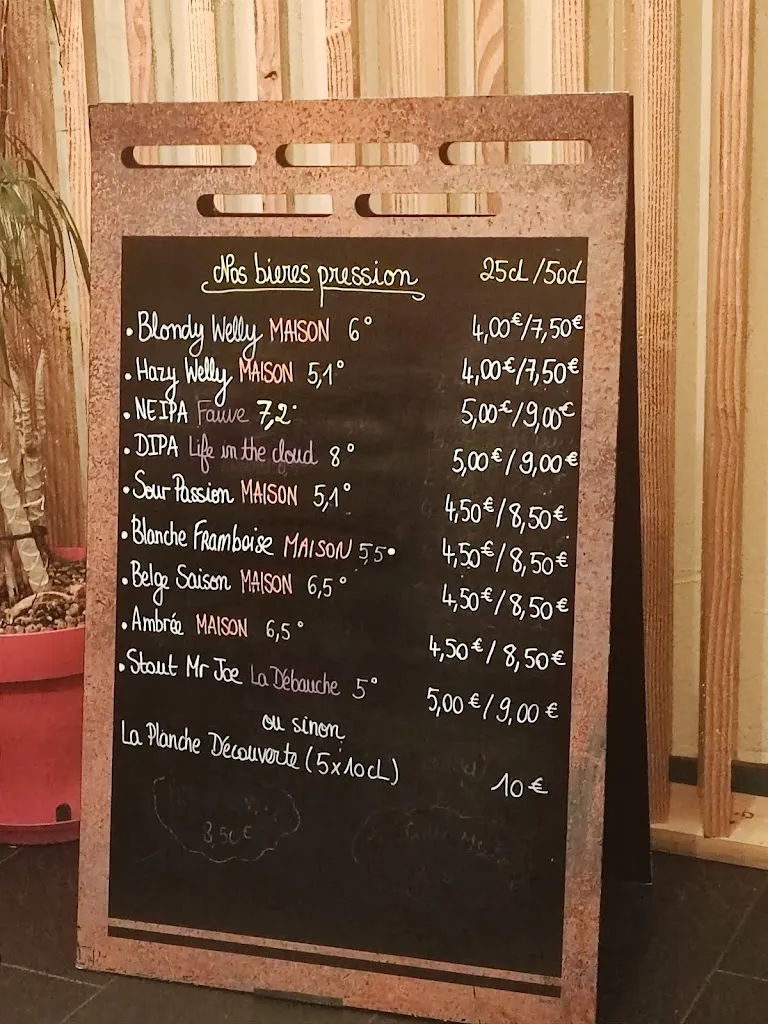 Nos bieres pression 25cl/50cl
• Blondy Welly MAISON 6° 4,00€/7,50€
• Hazy Welly MAISON 5,1° 4,00€/7,50€
• NEIPA Fauve 7,2° 5,00€/9,00€
• DIPA Life in the cloud 8° 5,00€/9,00€
• Sour Passion MAISON 5,1° 4,50€/8,50€
• Blanche Framboise MAISON 5,5° 4,50€/8,50€
• Belge Saison MAISON 6,5° 4,50€/8,50€
• Ambrée MAISON 6,5° 4,50€/8,50€
• Stout Mr Joe La Débauche 5° 5,00€/9,00€
ou sinon
La Planche Découverte (5x10cl) 10€
8,50€